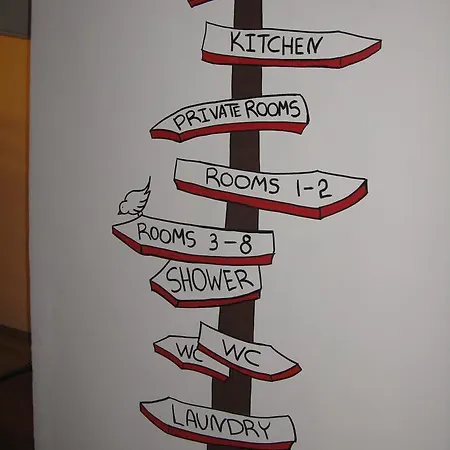 KITCHEN
PRIVATE ROOMS
ROOMS 1-2
ROOMS 3-8
SHOWER
WC
WC
LAUNDRY